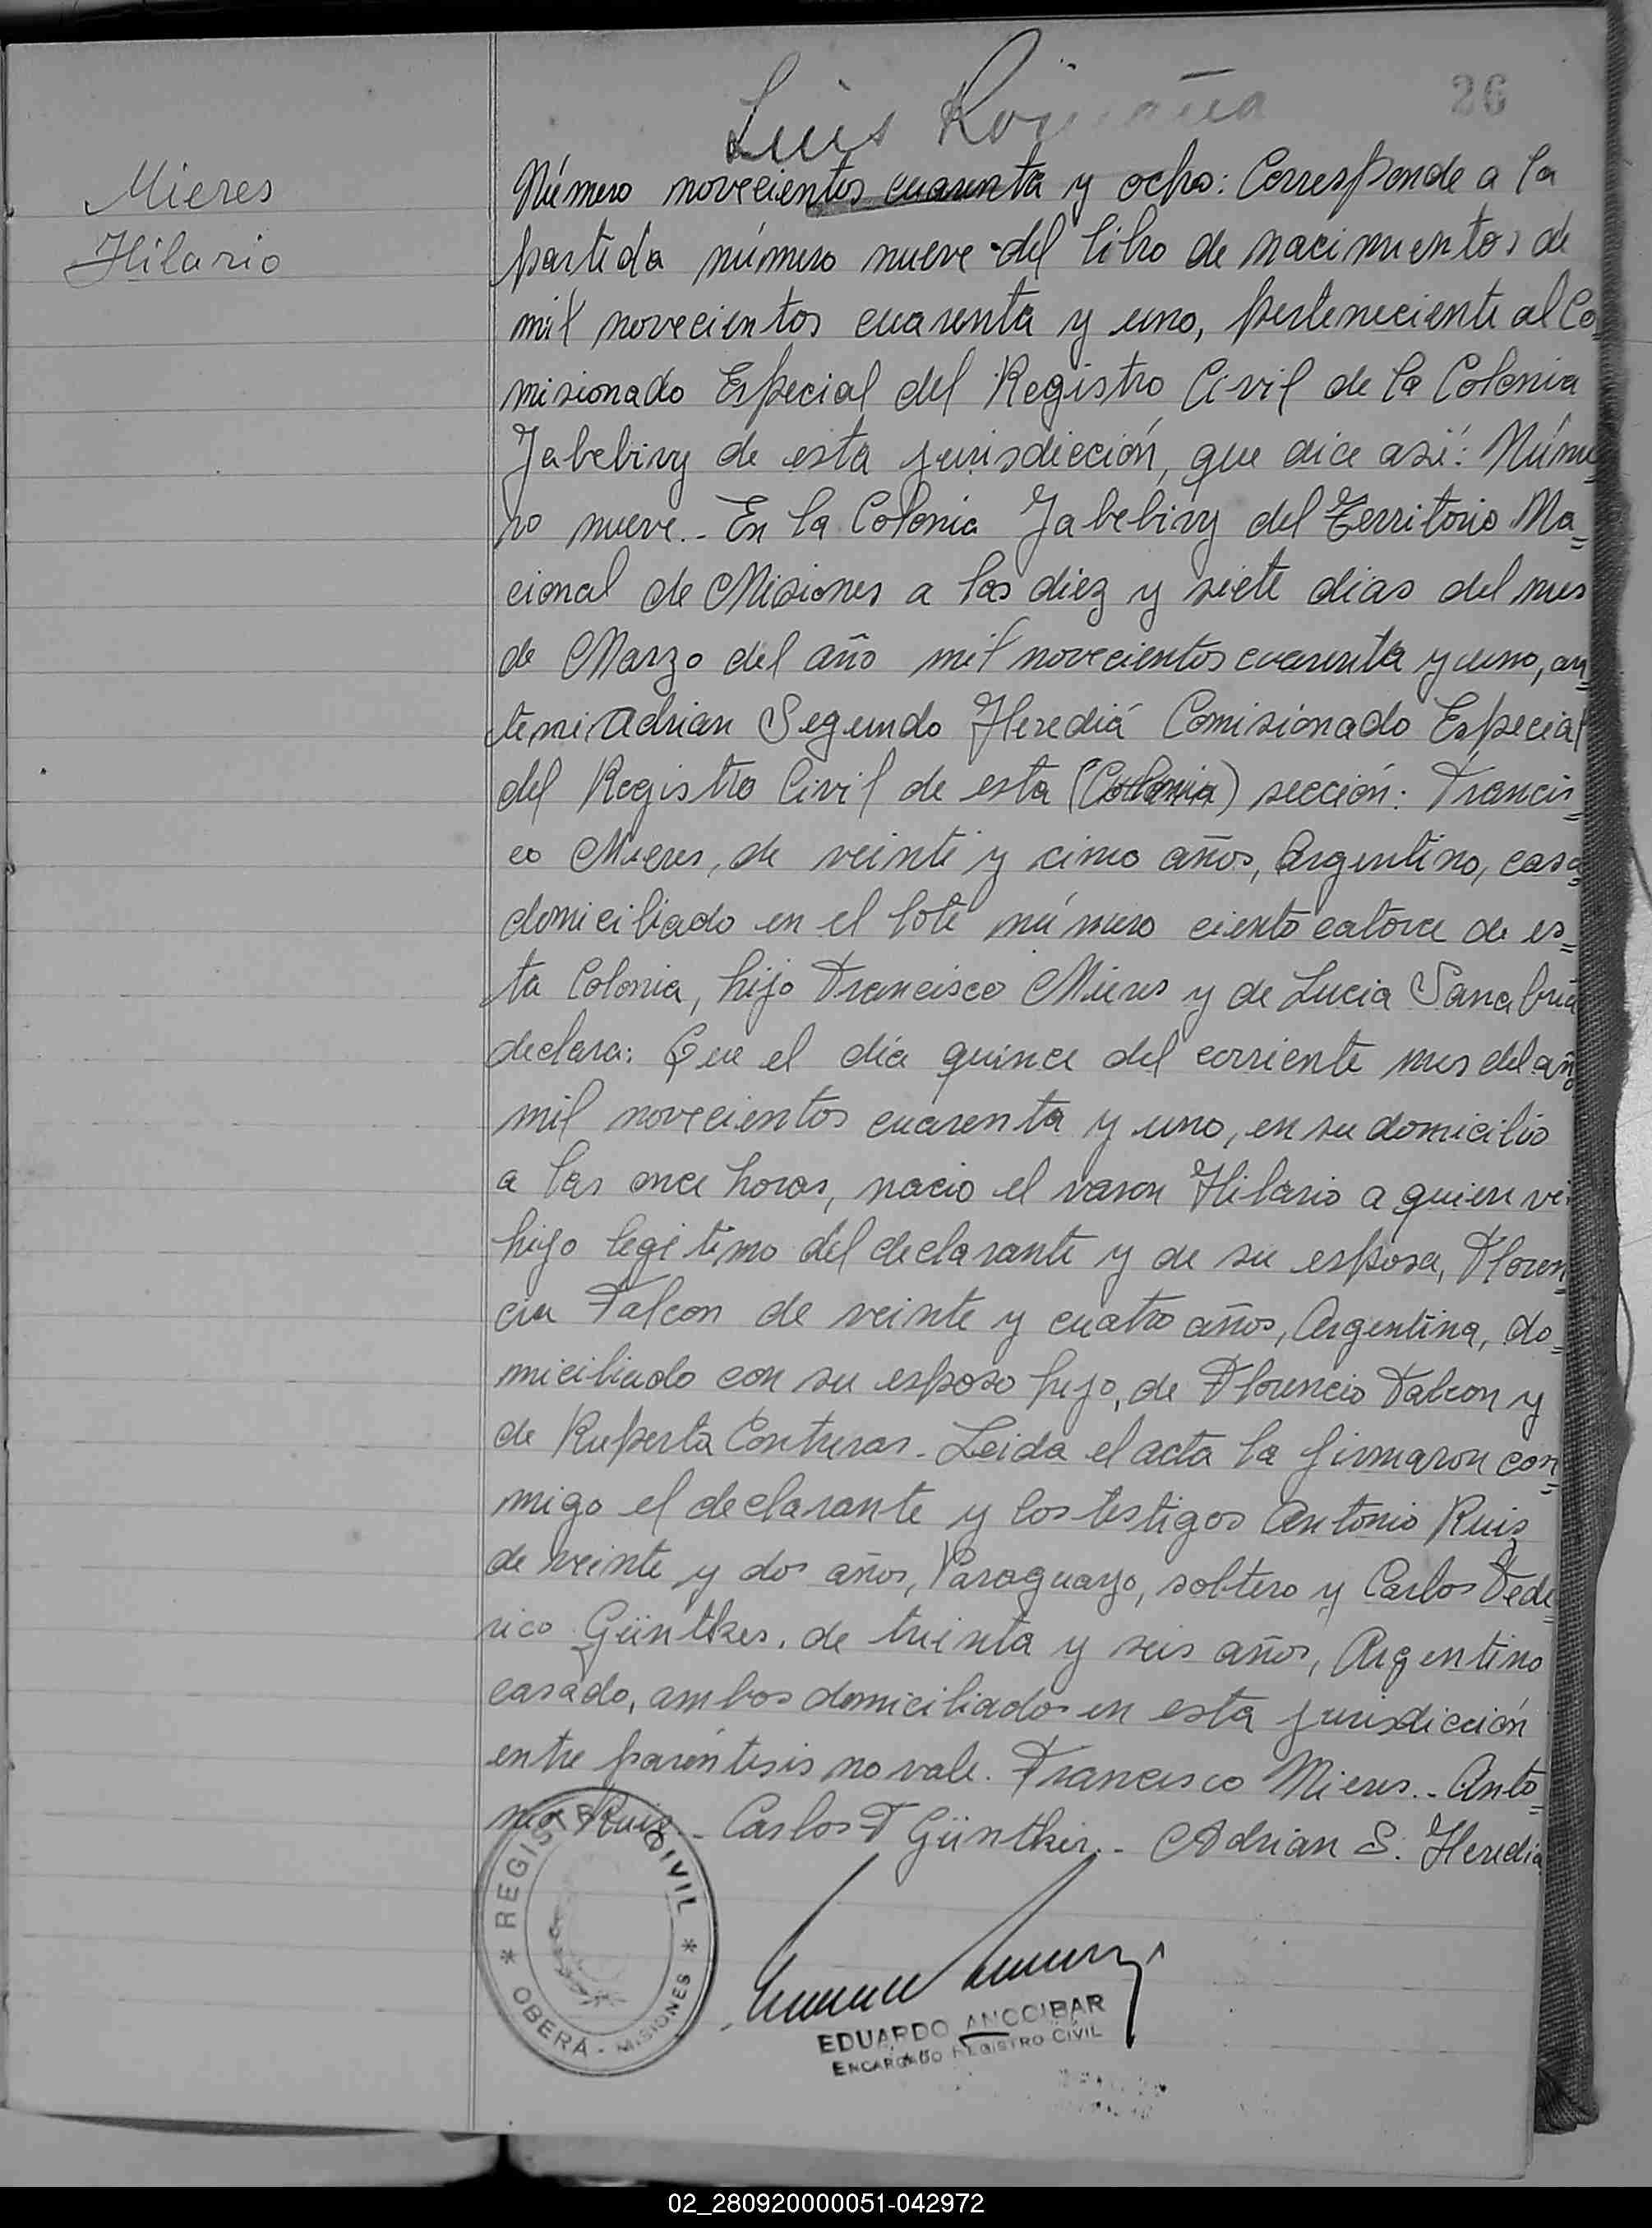 26
Luis
Mieres
Hilario
Número novecientos cuarenta y ocho: Corresponde a la
partida número nueve del libro de nacimientos de
mil novecientos cuarenta y uno, perteneciente al Co-
misionado Especial del Registro Civil de la Colonia
Yabebiry de esta jurisdicción, que dice asi: Núme-
ro nueve.- En la Colonia Yabebiry del Territorio Na=
cional de Misiones a los diez y siete dias del mes
de Marzo del año mil novecientos cuarenta y uno, an=
te mi Adrian Segundo Herediá Comisionado Especial
del Registro Civil de esta (Colonia) sección: Francis=
co Mieres, de veinte y cinco años, Argentino, casa=
domiciliado en el lote número ciento catorce de es=
ta Colonia, hijo Francisco Mieres y de Lucia Sanabria
declara: Que el día quince del corriente mes del año
mil novecientos cuarenta y uno, en su domicilio
a las once horas, nacio el varon Hilario a quien vi
hijo legitimo del declarante y de su esposa, Floren=
cia Falcon de veinte y cuatro años, Argentina, do=
miciliado con su esposo hijo, de Florencio Falcon y
de Ruperta Contreras.- Leida el acta la firmaron con=
migo el declarante y los testigos Antonio Ruis
de veinte y dos años, Paraguayo, soltero y Carlos Fede=
rico Günthes, de treinta y seis años, Argentino
casado, ambos domiciliados en esta jurisdicción
entre paréntesis no vale. Francisco Mieres.- Anto=
nio Ruis.- Carlos F Günther.- Adrian S. Heredia
* REGISTRO CIVIL *
OBERÁ - MISIONES
EDUARDO ANCCIBAR
ENCARGADO REGISTRO CIVIL
02_280920000051-042972